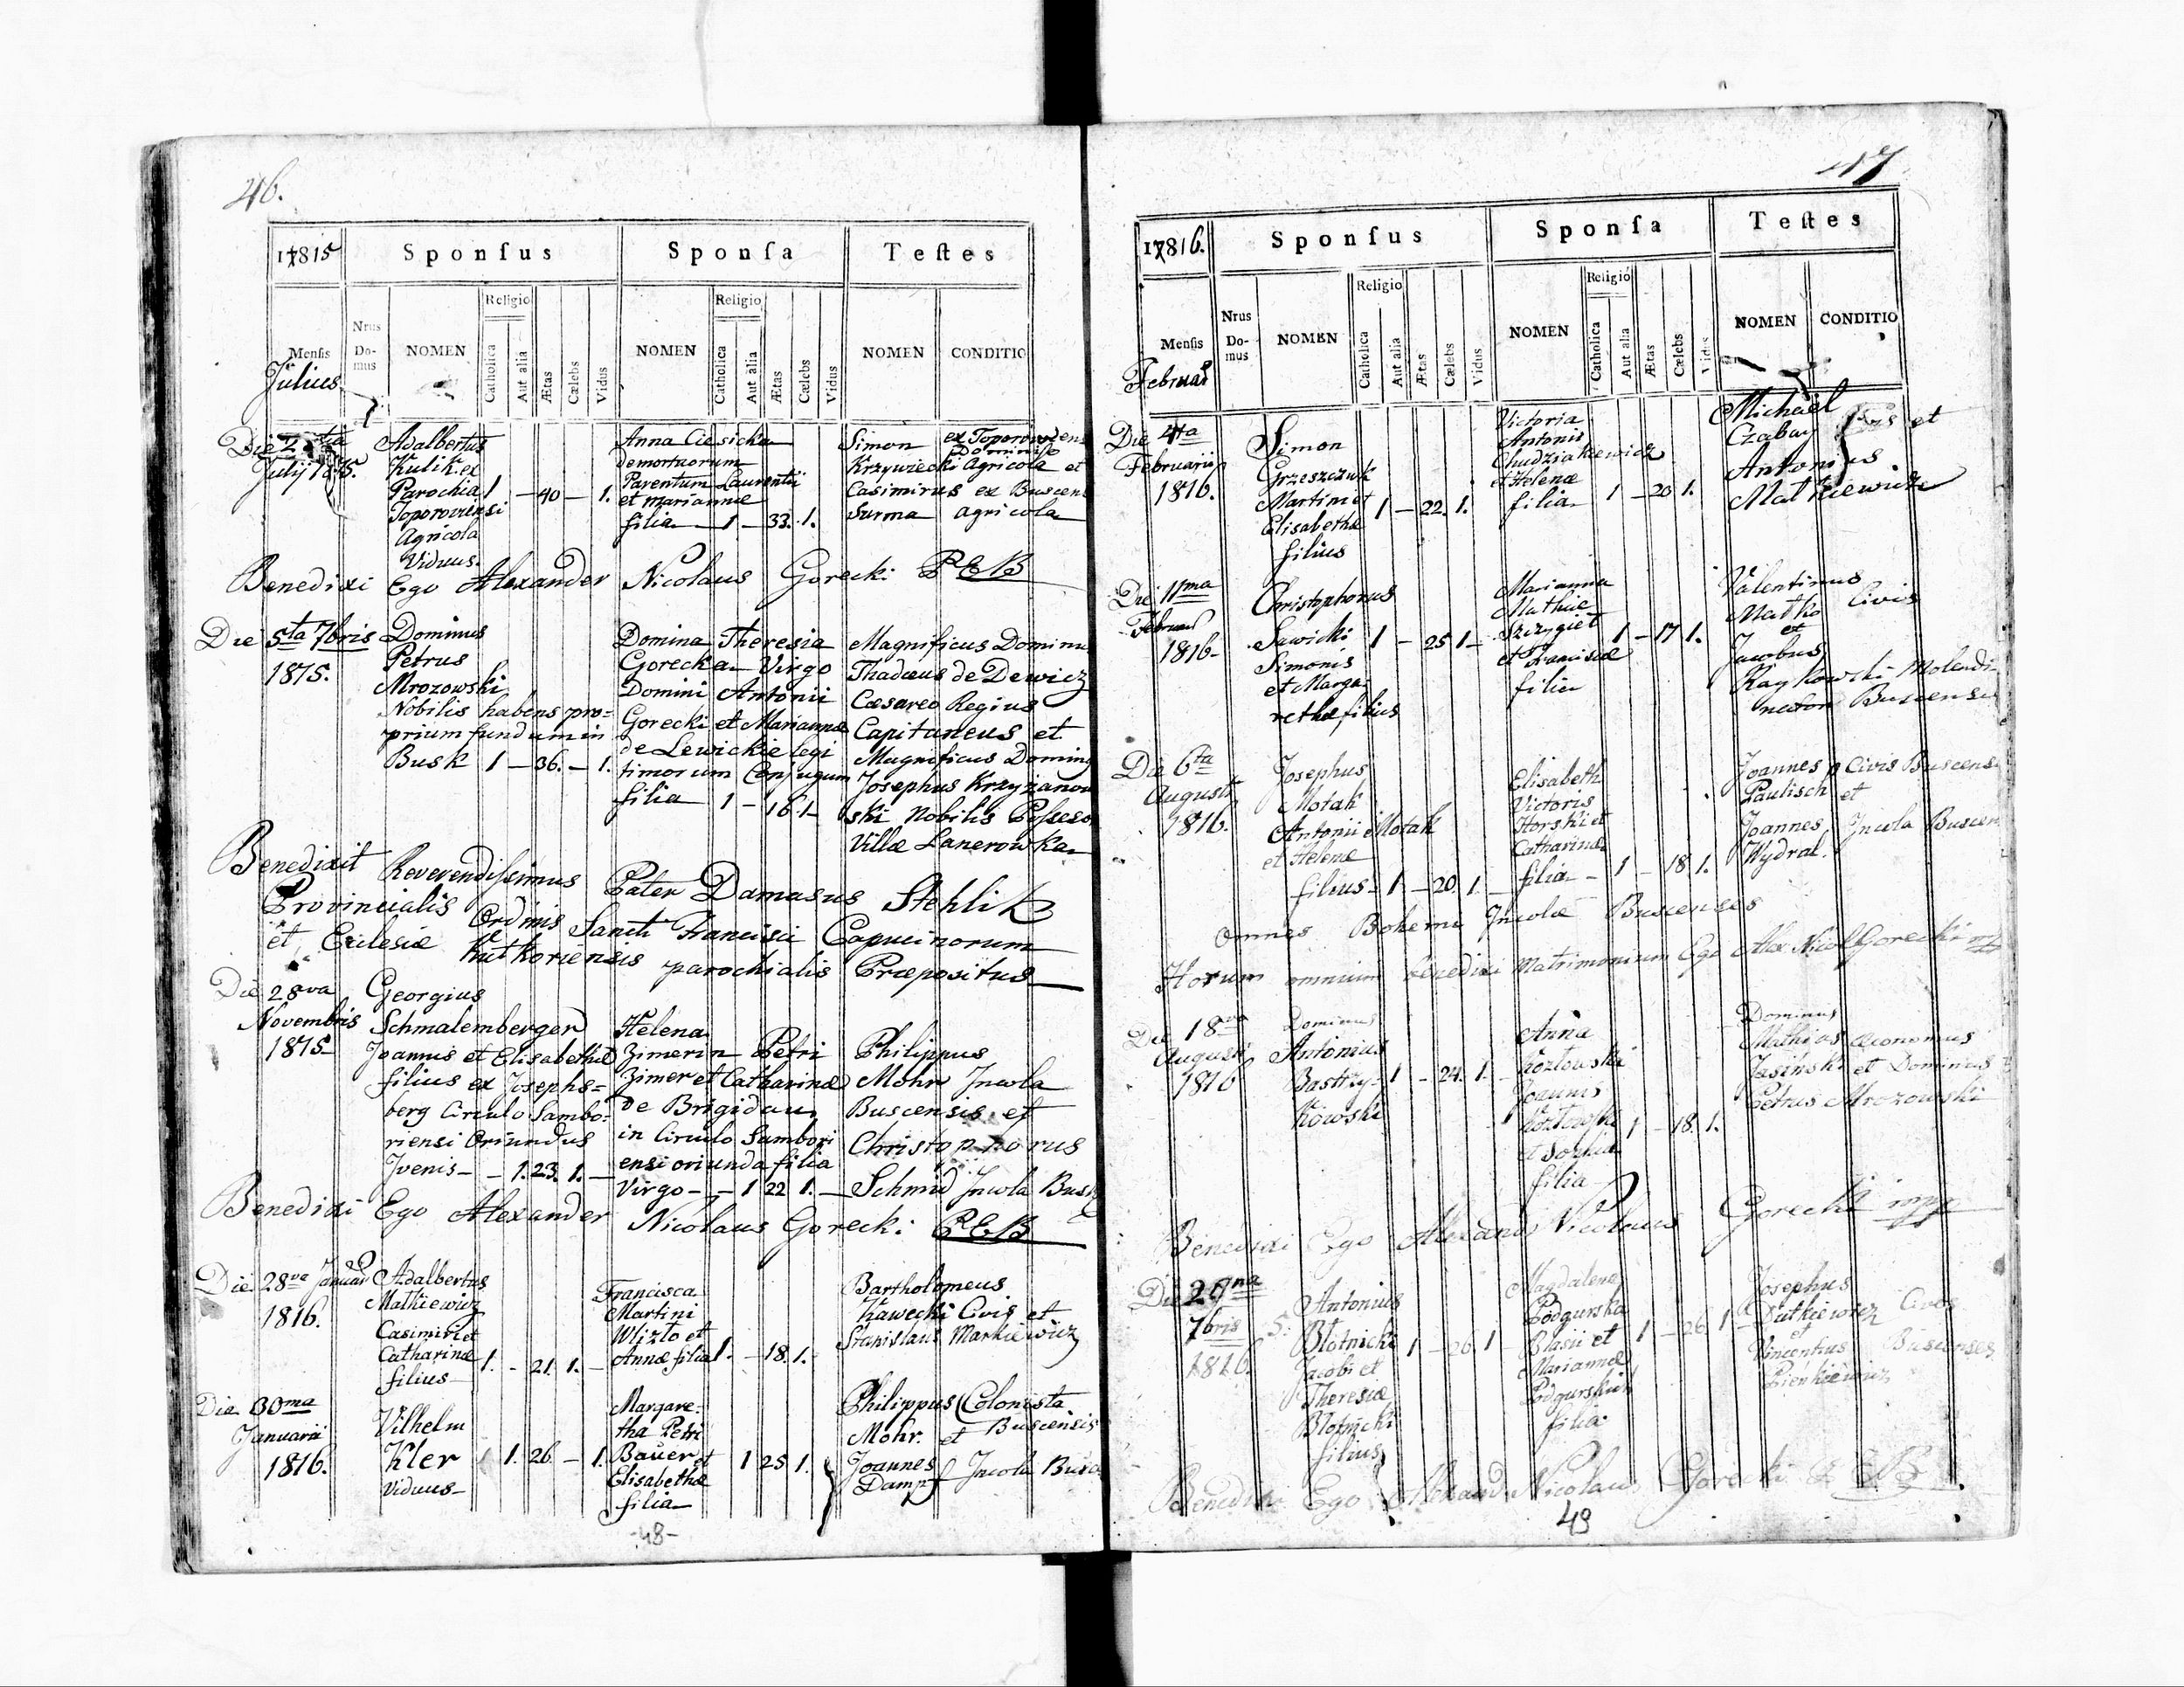 46.
1815
Sponſus
Sponſa
Teſtes
Religio
Religio
Nrus
Menſis
Do-
mus
NOMEN
Catholica
Aut alia
Ætas
Cælebs
Vidus
NOMEN
Catholica
Aut alia
Ætas
Cælebs
Vidus
NOMEN
CONDITIO
Julius
Die
Julij 1815.
Adalbertus
Kulik ex
Parochia 1 – 40 – 1.
Toporoviensi
Agricola
Viduus.
Anna Ciesicka
demortuorum
Parentum Laurentii
et Mariannæ
filia 1 – 33. 1.
Simon ex Toporov
Krzywiecki Agricola et
Casimirus ex Buscen
Surma agricola
Benedixi Ego Alexander Nicolaus Gorecki PEB
Die 5ta 7bris
1815.
Dominus
Petrus
Mrozowski
Nobilis habens pro=
prium fundum in
Busk 1 – 36. – 1.
Domina Theresia
Gorecka Virgo
Domini Antonii
Gorecki et Mariannæ
de Lewickie legi
timorum Conjugum
filia 1 – 16. 1–
Magnificus Dominu
Thadæus de Dewicz
Cæsareo Regius
Capitaneus et
Magnificus Domin
Josephus Krzyżanow
ski Nobilis Possesso
Villæ Lanerowka
Benedixit Reverendissimus Pater Damasus Stehlik
Provincialis Ordinis Sancti Francisci Capucinorum
et Ecclesiæ Kutkoriensis parochialis Præpositus
Die 28va
Novembris
1815
Georgius
Schmalemberger
Joannis et Elisabethæ
filius ex Josephs=
berg Circulo Sambo=
riensi Oriundus
Juvenis – – 1. 23. 1. –
Helena
Zimerin Petri
Zimer et Catharinæ
de Brigidau
in Circulo Sambori
ensi oriunda filia
Virgo – – 1 22 1. –
Philippus
Mohr Incola
Buscensis et
Christophorus
Schmid Incola Busk
Benedixi Ego Alexander Nicolaus Gorecki PEB
Die 28va Januar
1816.
Adalbertus
Mathiewicz
Casimiri et
Catharinæ 1. – 21. 1. –
filius
Francisca
Martini
Wlizlo et
Annæ filia 1. – 18. 1.
Bartholomeus
Kawecki Civis et
Stanislaus Markiewicz
Die 30ma
Januarii
1816.
Vilhelm
Kler 1. 26 – 1.
Viduus
Margare-
tha Petri
Bauer et 1 25 1.
Elisabethæ
filia
Philippus Colonista
Mohr. et Buscensis
Joannes Incola Busc
Dampf
-48-
47
1816.
Sponſus
Sponſa
Teſtes
Religio
Religio
Nrus
Menſis
Do-
mus
NOMEN
Catholica
Aut alia
Ætas
Cælebs
Vidus
NOMEN
Catholica
Aut alia
Ætas
Cælebs
Vidus
NOMEN
CONDITIO
Februar
Die 4ta
Februarii
1816.
Simon
Grzeszczuk
Martini et 1 – 22. 1.
Elisabethæ
filius
Victoria
Antonii
Chudziakiewicz
et Helenæ
filia 1 – 20 1.
Michael
Czabay et
Antonius
Matkiewicz
Die 11ma
Februar
1816–
Christophorus
Sawicki 1 – 25 1–
Simonis
et Marga-
rethæ filius
Marianna
Mathiæ
Szczygieł 1 – 17 1.
et Franciscæ
filia
Valentinus
Matko Civis
et
Jacobus
Raykowski Molendi-
nator Buscensis
Die 6ta
Augusti
1816.
Josephus
Motak
Antonii Motak
et Helenæ
filius – 1 – 20. 1.
Elisabeth
Victoris
Horski et
Catharinæ
filia – 1 – 18 1.
Joannes Civis Buscens
Paulisch et
Joannes Incola Buscen
Wydral.
omnes Bohemi Incolæ Buscenses
Horum omnium benedixi Matrimonium Ego Alex Nicol Gorecki mp
Die 18va
Augusti
1816
Dominus
Antonius
Bastrzy- 1 – 24. 1.
kowski
Anna
Kozłowski
Joannis
Kozłowski 1 – 18. 1.
et Sophiæ
filia
Dominus
Mathias œconomus
Jasinski et Dominus
Petrus Mrozowski
Benedixi Ego Alexand Nicolaus Gorecki mpp
Die 29na
7bris
1816.
Antonius
Błotnicki 1 – 26 1
Jacobi et
Theresiæ
Błotnicki
filius
Magdalena
Podgurska
Blasii et 1 – 26 1
Mariannæ
Podgurskich
filia
Josephus
Dutkiewicz Cives
et
Vincentius Buscenses
Pieńkiewicz
Benedixi Ego Alexand Nicolaus Gorecki PEB
49